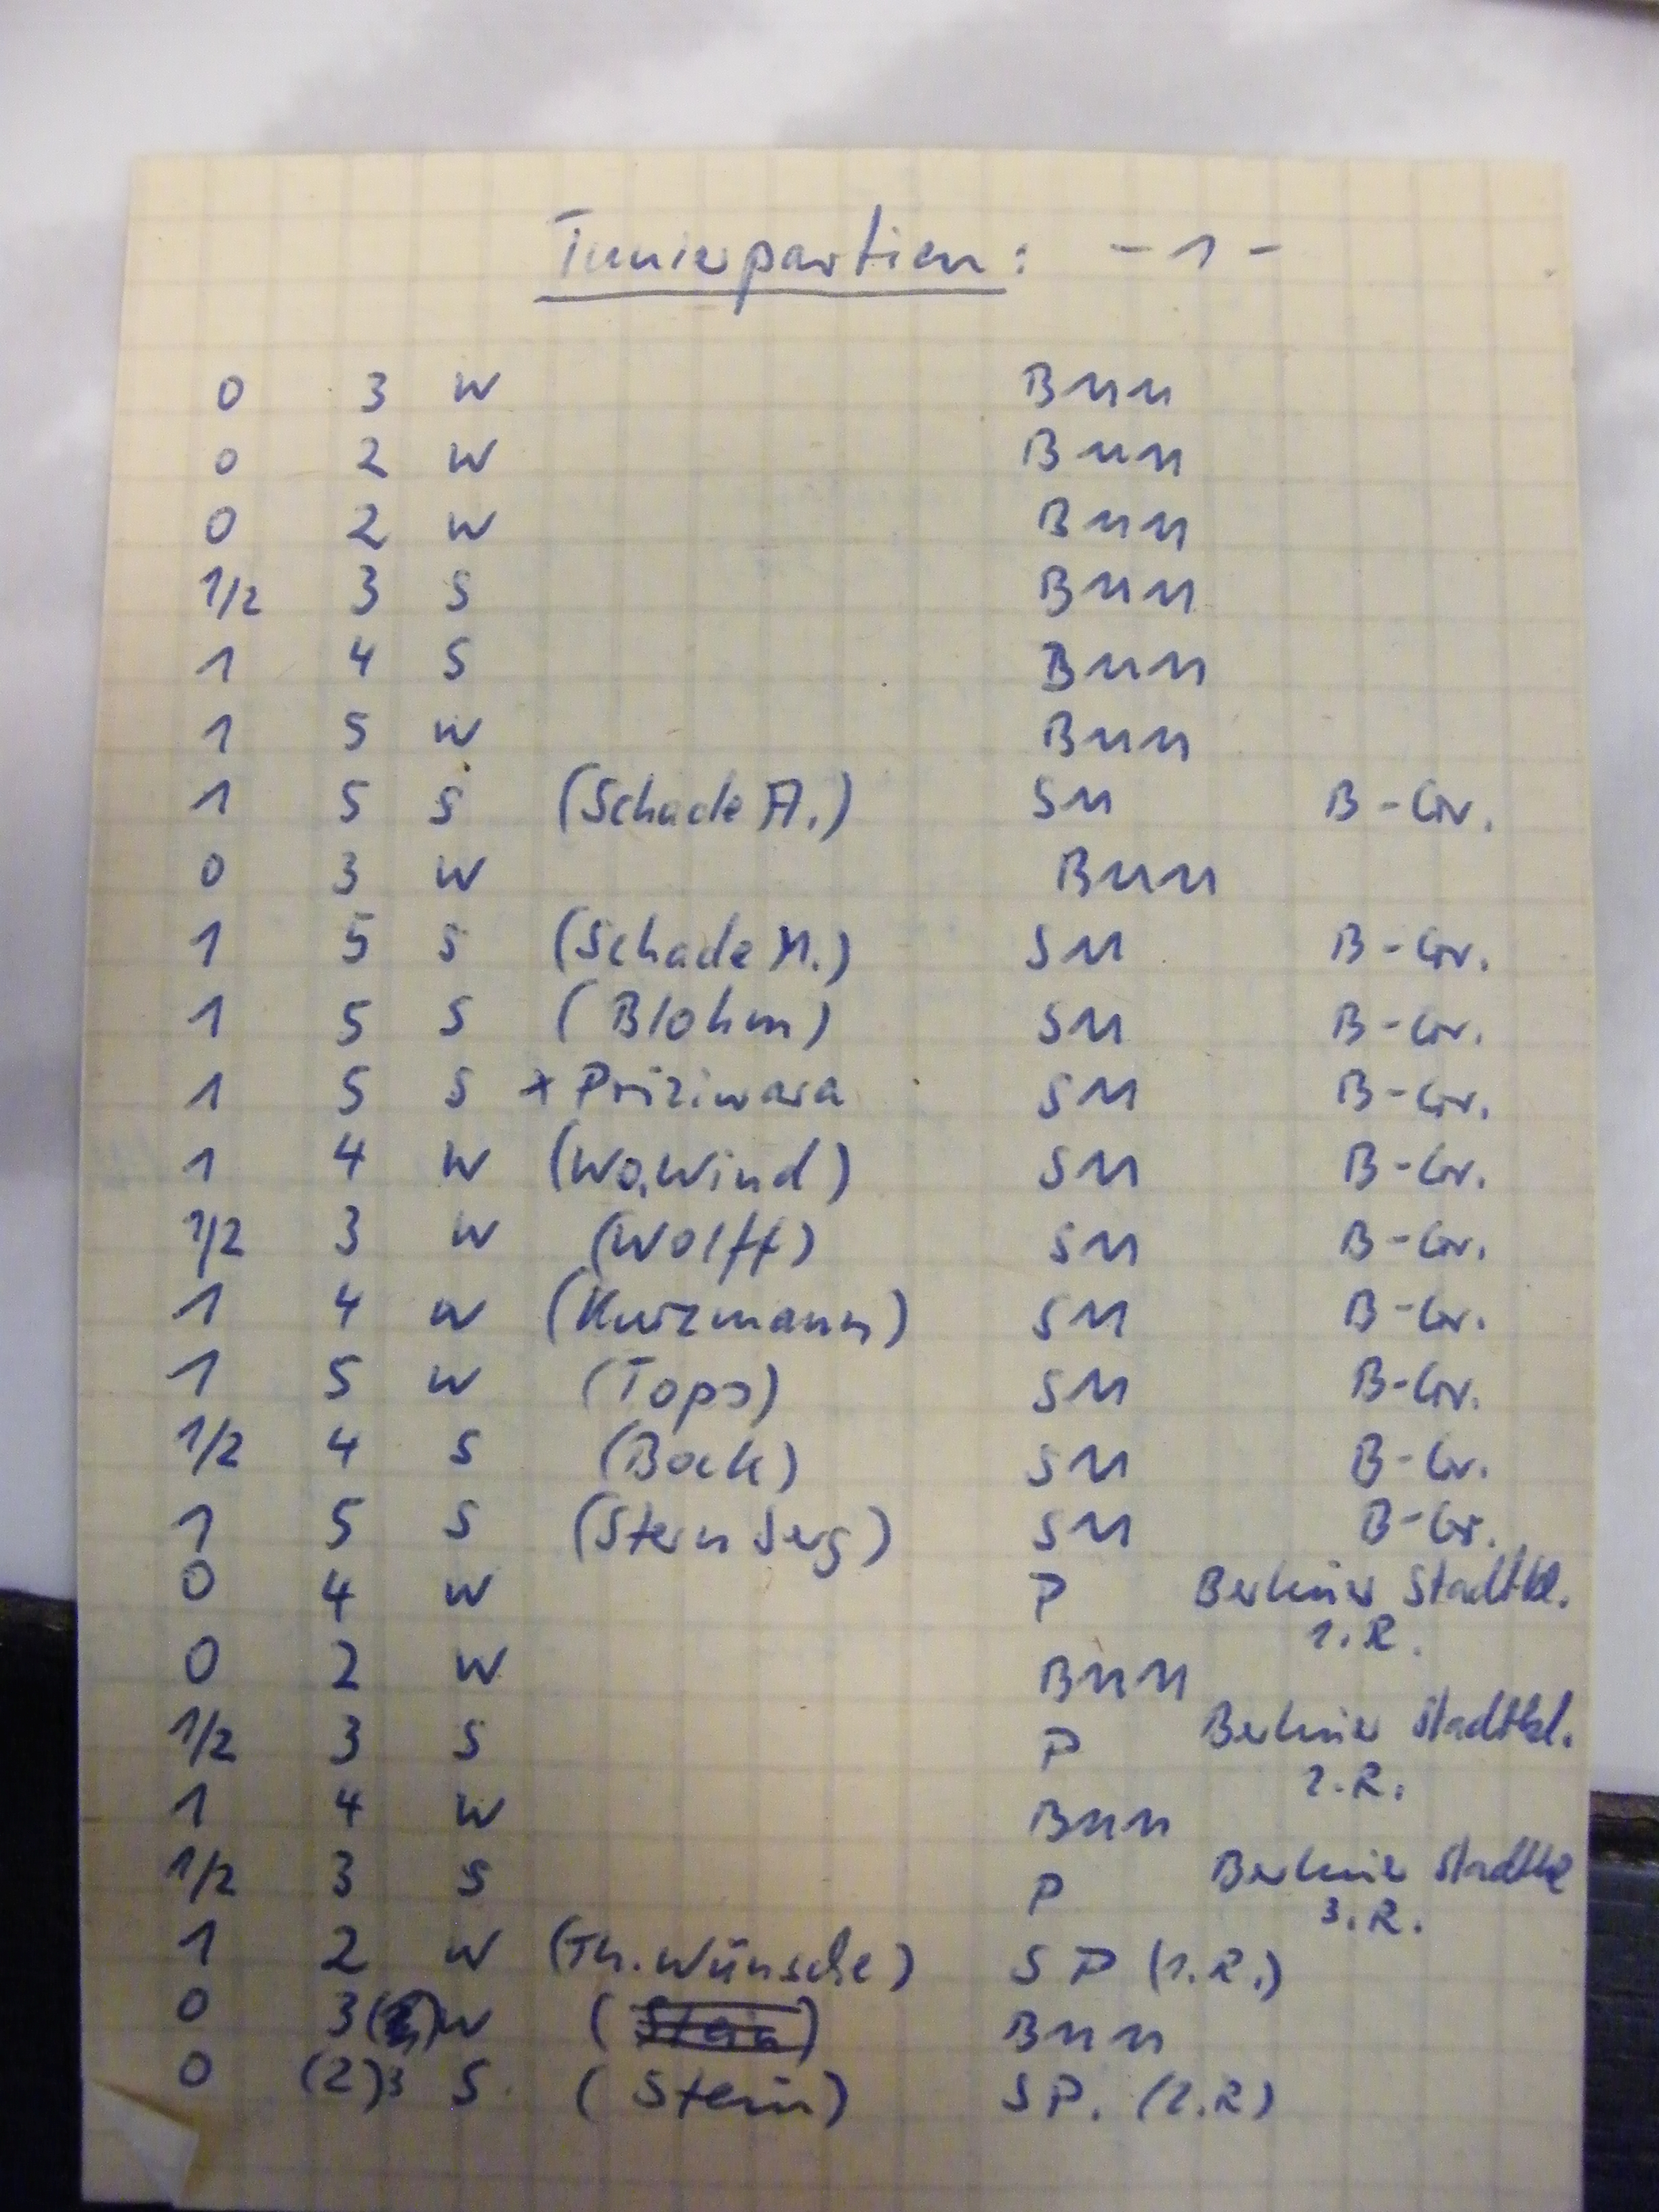 Tunierpartien: - 1 -
0 3 W BMM
0 2 W BMM
0 2 W BMM
1/2 3 S BMM
1 4 S BMM
1 5 W BMM
1 5 S (Schade A.) SM B-Gr.
0 3 W BMM
1 5 S (Schade M.) SM B-Gr.
1 5 S (Blohm) SM B-Gr.
1 5 S + Priziwara SM B-Gr.
1 4 W (Wo.Wind) SM B-Gr.
1/2 3 W (Wolff) SM B-Gr.
1 4 W (Kurzmann) SM B-Gr.
1 5 W (Topp) SM B-Gr.
1/2 4 S (Bock) SM B-Gr.
1 5 S (Stern Serg) SM B-Gr.
0 4 W P Berliner Stadtkl.
1.R.
0 2 W BMM
1/2 3 S P Berliner Stadtkl.
2.R.
1 4 W BMM
1/2 3 S P Berliner Stadtkl
3.R.
1 2 W (Th. Wünsche) SP (1.R.)
0 3 W (Stein) BMM
0 (2)3 S (Stein) SP. (2.R)